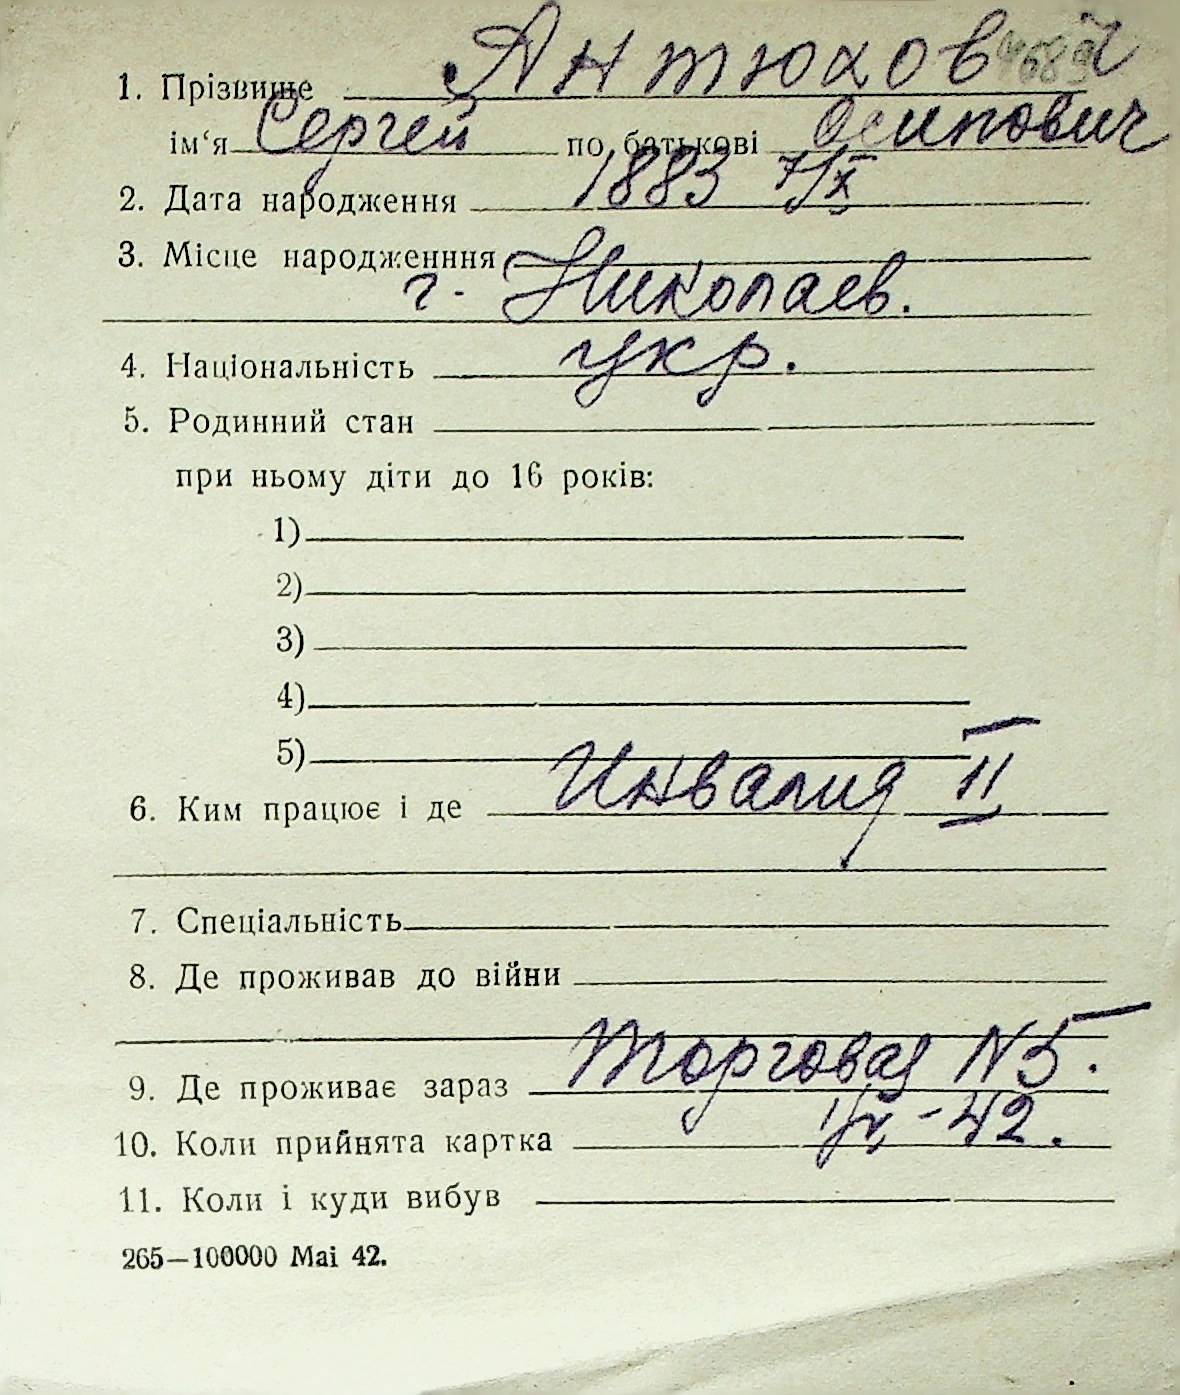 1. Прізвище Антюхов
ім'я Сергей по батькові Осипович
2. Дата народження 1883 7/X
3. Місце народженння
г. Николаев.
4. Національність укр.
5. Родинний стан
при ньому діти до 16 років:
1)
2)
3)
4)
5)
6. Ким працює і де Инвалид II
7. Спеціальність
8. Де проживав до війни
9. Де проживає зараз Торговая N 5.
10. Коли прийнята картка -42.
11. Коли і куди вибув
265—100000 Mai 42.